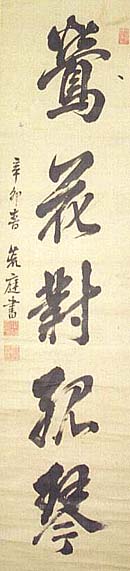 鶯花對孤琴
辛卯春 荒庭書